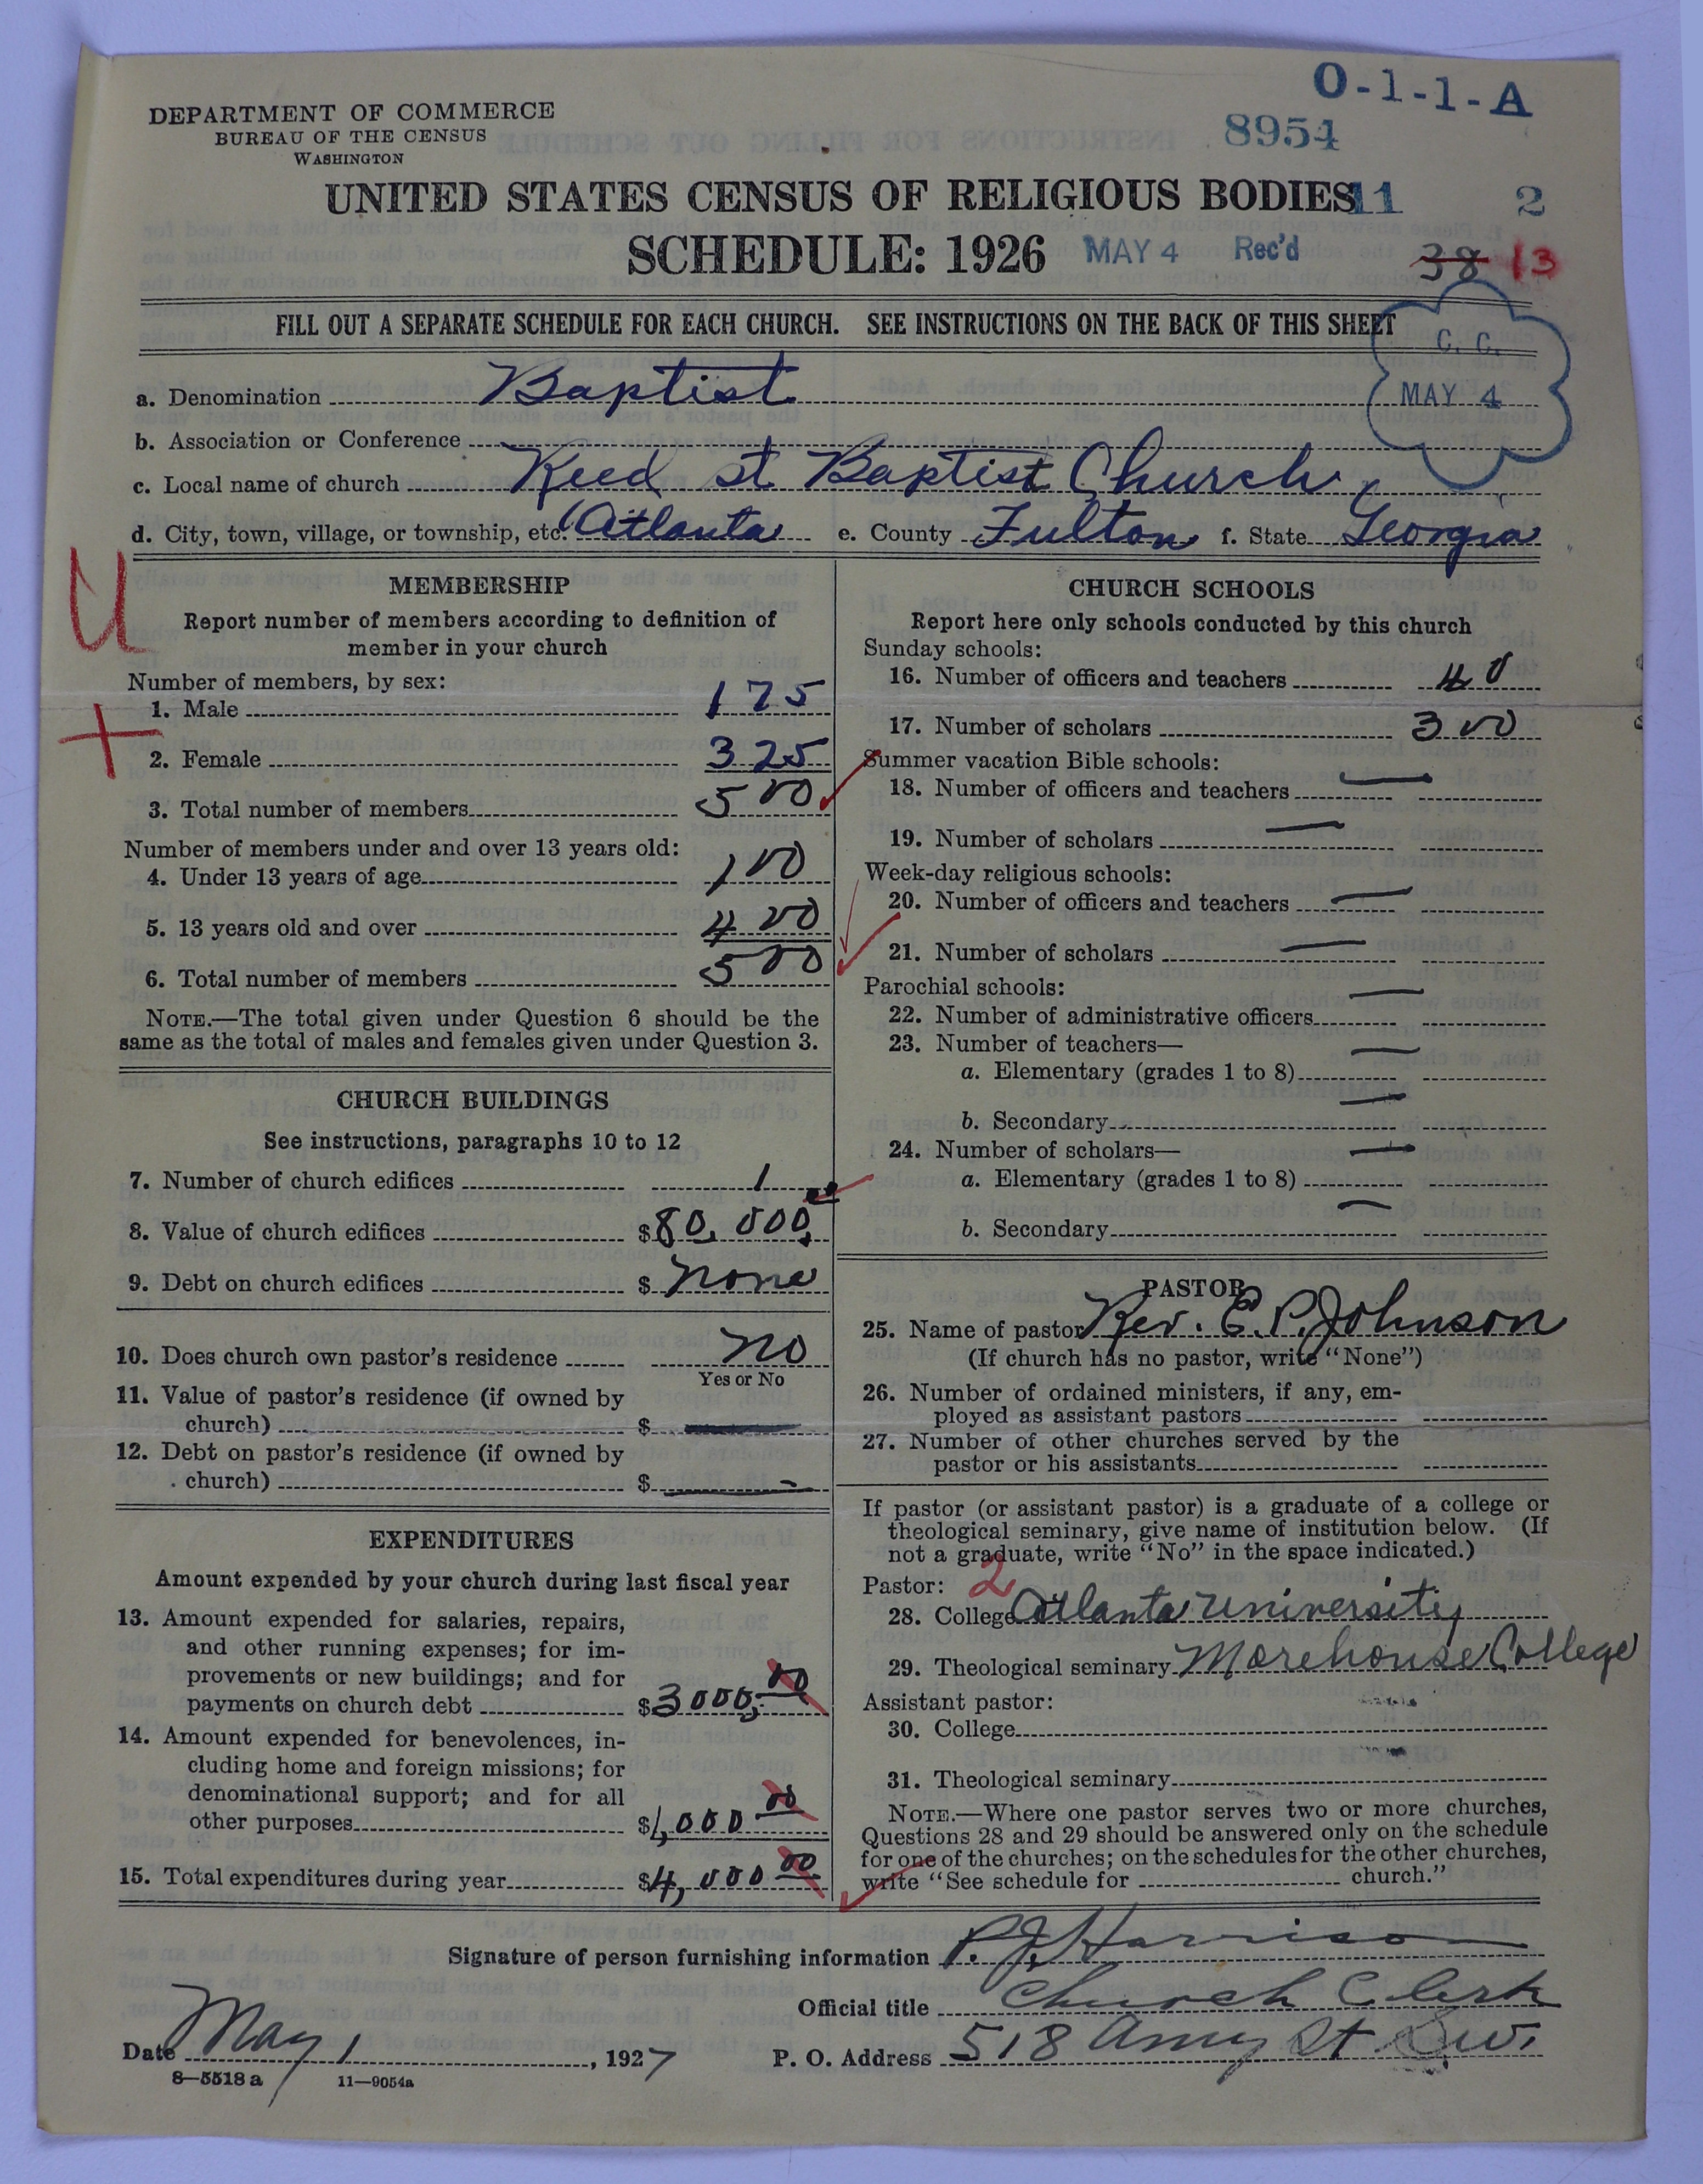 O-1-1-A
DEPARTMENT OF COMMERCE
BUREAU OF THE CENSUS
WASHINGTON
8954
UNITED STATES CENSUS OF RELIGIOUS BODIES 11 2
SCHEDULE: 1926 MAY 4 Rec'd 38 13
FILL OUT A SEPARATE SCHEDULE FOR EACH CHURCH. SEE INSTRUCTIONS ON THE BACK OF THIS SHEET
C. C.
MAY 4
a. Denomination Baptist
b. Association or Conference
c. Local name of church Reed st Baptist Church
d. City, town, village, or township, etc. Atlanta e. County Fulton f. State Georgia
U
MEMBERSHIP
Report number of members according to definition of
member in your church
Number of members, by sex:
1. Male 175
2. Female 325
3. Total number of members 500
Number of members under and over 13 years old:
4. Under 13 years of age 100
5. 13 years old and over 400
6. Total number of members 500
NOTE.—The total given under Question 6 should be the
same as the total of males and females given under Question 3.
CHURCH BUILDINGS
See instructions, paragraphs 10 to 12
7. Number of church edifices 1
8. Value of church edifices $80,000
9. Debt on church edifices $ none
10. Does church own pastor's residence no
Yes or No
11. Value of pastor's residence (if owned by
church) $ —
12. Debt on pastor's residence (if owned by
church) $ —
EXPENDITURES
Amount expended by your church during last fiscal year
13. Amount expended for salaries, repairs,
and other running expenses; for im-
provements or new buildings; and for
payments on church debt $3000,00
14. Amount expended for benevolences, in-
cluding home and foreign missions; for
denominational support; and for all
other purposes $1,000 00
15. Total expenditures during year $4,000 00
CHURCH SCHOOLS
Report here only schools conducted by this church
Sunday schools:
16. Number of officers and teachers 40
17. Number of scholars 300
Summer vacation Bible schools:
18. Number of officers and teachers —
19. Number of scholars —
Week-day religious schools:
20. Number of officers and teachers —
21. Number of scholars —
Parochial schools:
22. Number of administrative officers —
23. Number of teachers—
a. Elementary (grades 1 to 8) —
b. Secondary —
24. Number of scholars—
a. Elementary (grades 1 to 8) —
b. Secondary —
PASTOR
25. Name of pastor Rev. E. P. Johnson
(If church has no pastor, write "None")
26. Number of ordained ministers, if any, em-
ployed as assistant pastors
27. Number of other churches served by the
pastor or his assistants
If pastor (or assistant pastor) is a graduate of a college or
theological seminary, give name of institution below. (If
not a graduate, write "No" in the space indicated.)
Pastor: 2
28. College Atlanta University
29. Theological seminary Morehouse College
Assistant pastor:
30. College
31. Theological seminary
NOTE.—Where one pastor serves two or more churches,
Questions 28 and 29 should be answered only on the schedule
for one of the churches; on the schedules for the other churches,
write "See schedule for church."
Signature of person furnishing information P. J. Harrison
Official title Church Clerk
Date May 1, 1927 P. O. Address 518 Amy St S.W.
8—5518 a 11—9054a